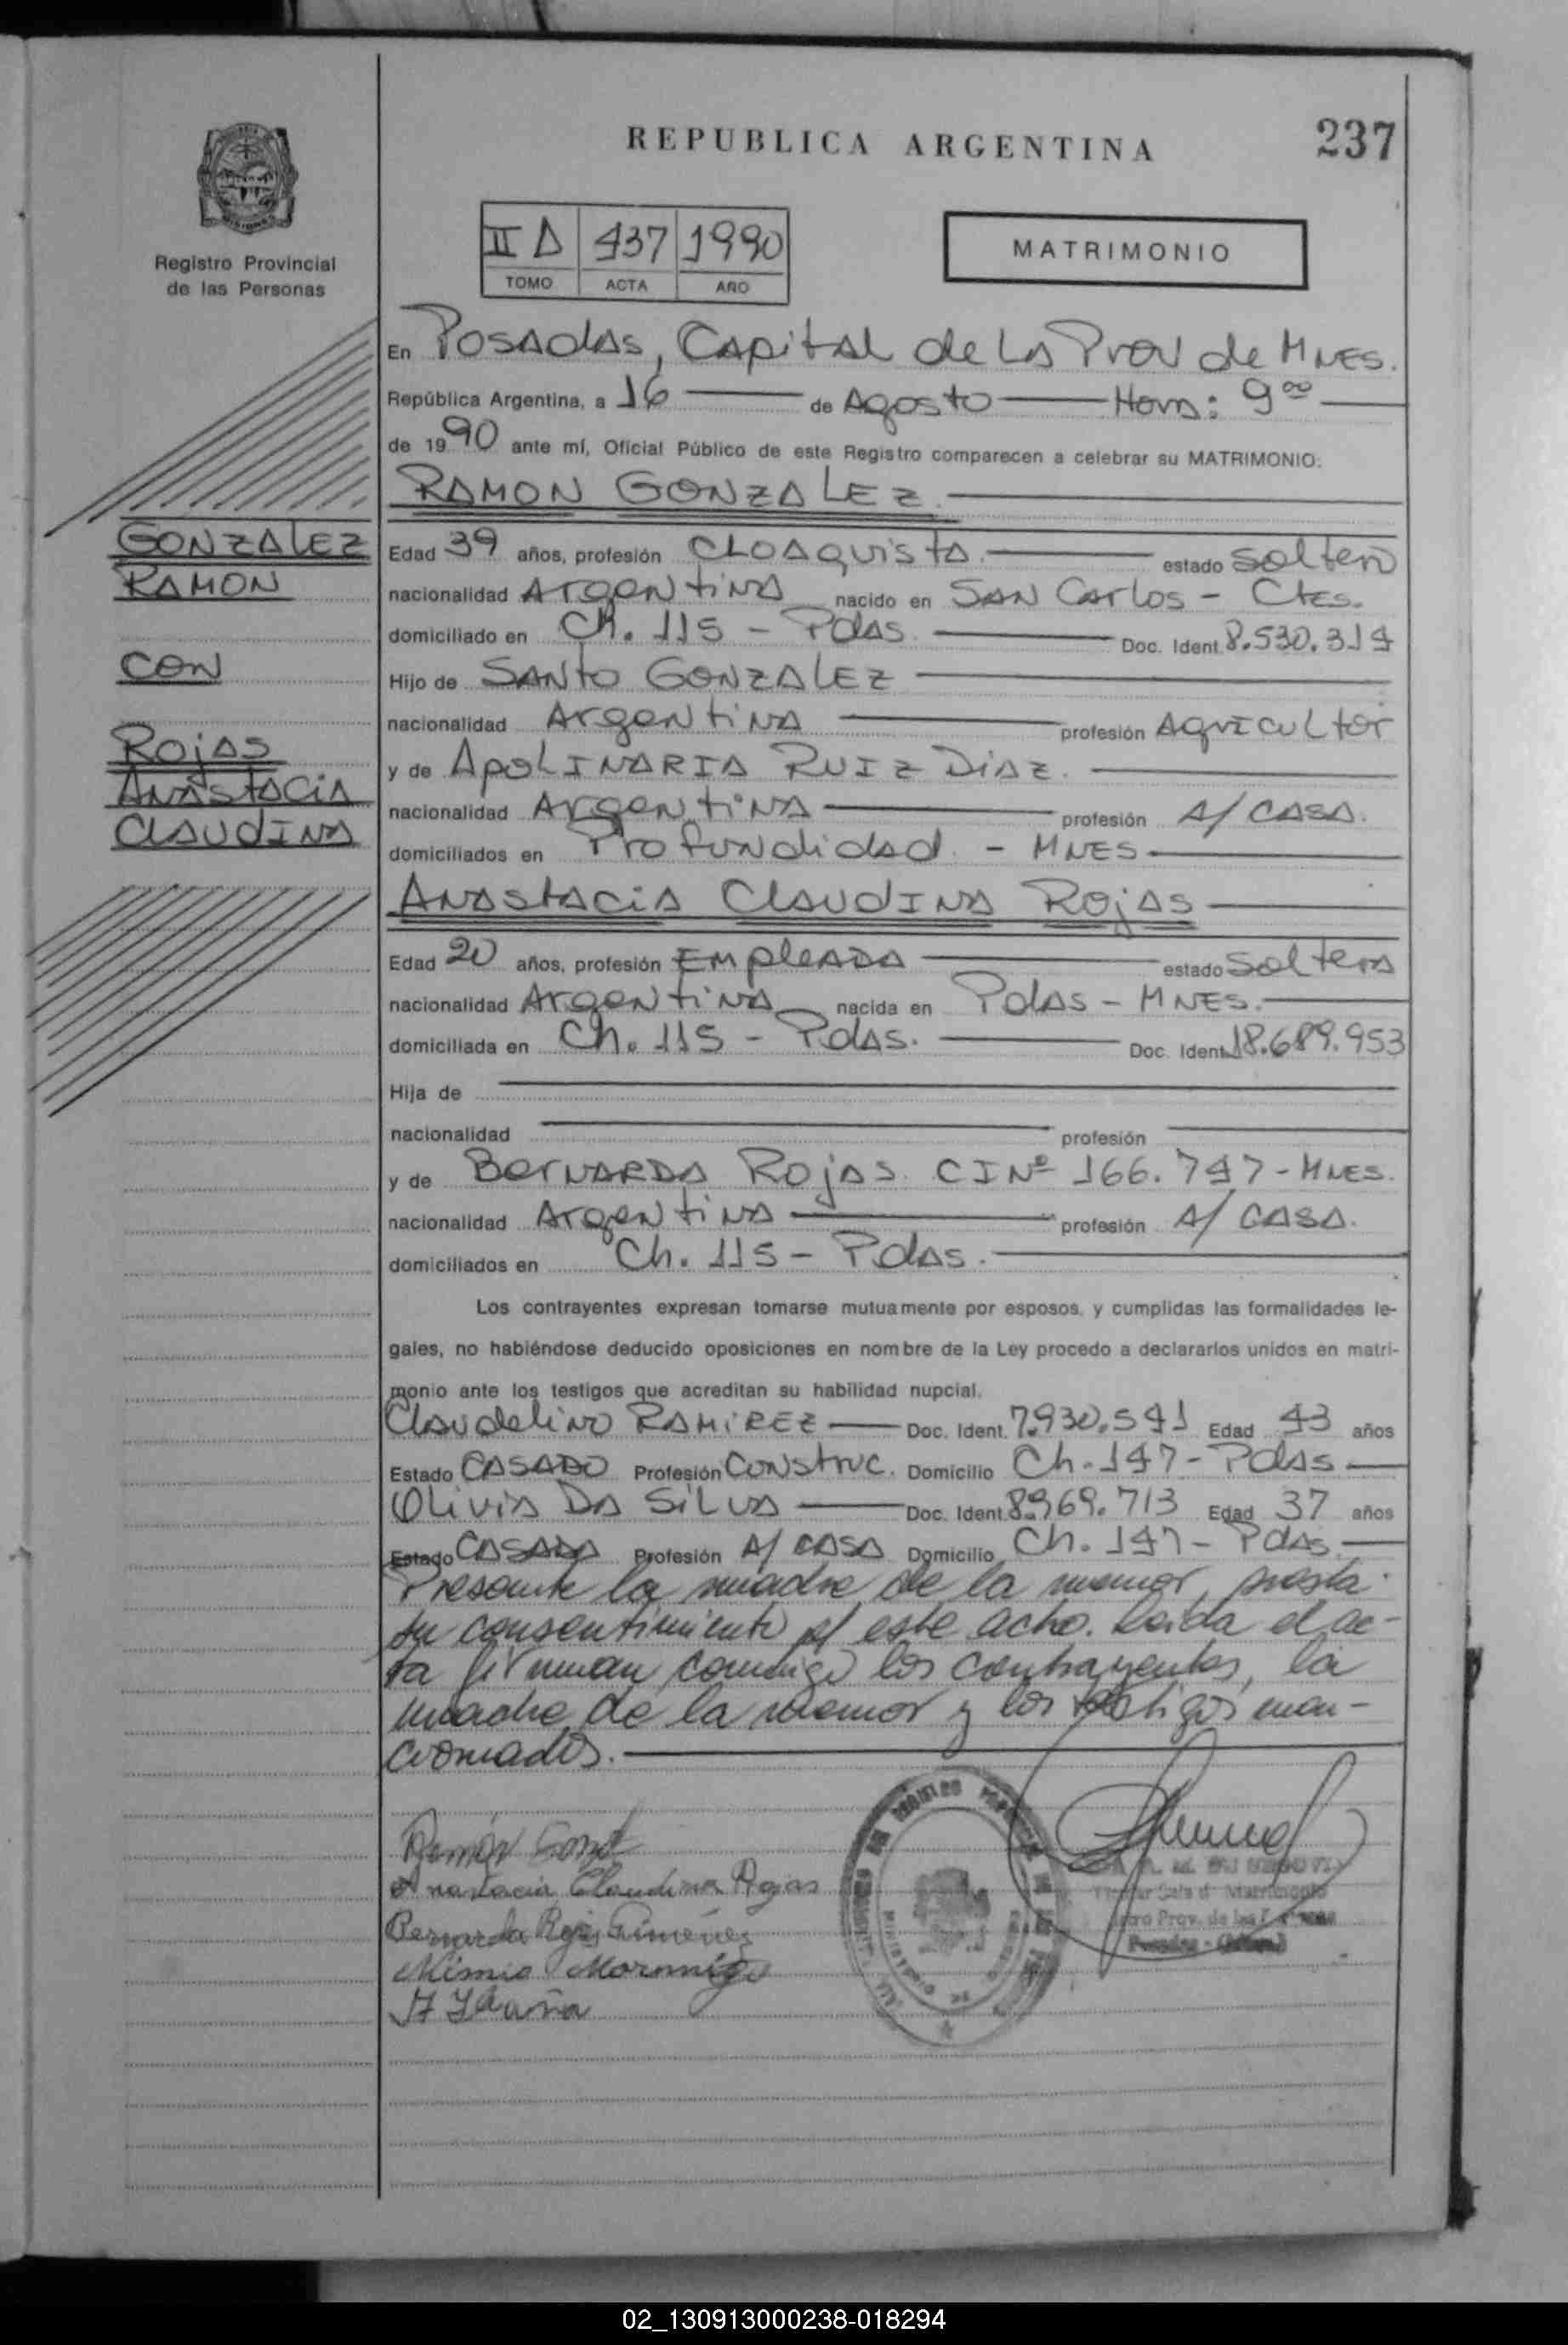 REPUBLICA ARGENTINA
237
Registro Provincial
de las Personas
II A 437 1990
TOMO ACTA AÑO
MATRIMONIO
En Posadas, Capital de La Prov de Mnes.
República Argentina, a 16 de Agosto Hora: 9 00
de 1990 ante mí, Oficial Público de este Registro comparecen a celebrar su MATRIMONIO:
RAMON GONZALEZ.
GONZALEZ
RAMON
CON
ROJAS
ANASTACIA
CLAUDINA
Edad 39 años, profesión Cloaquista. estado soltero
nacionalidad Argentina nacido en San Carlos - Ctes.
domiciliado en Ch. 115 - Pdas. Doc. Ident. 8.530.314
Hijo de SANTO GONZALEZ
nacionalidad Argentina profesión Agricultor
y de APOLINARIA RUIZ DIAZ.
nacionalidad Argentina profesión A/ CASA.
domiciliados en Profundidad. - MNES
ANASTACIA CLAUDINA ROJAS
Edad 20 años, profesión EMPLEADA estado Soltera
nacionalidad Argentina nacida en Pdas - MNES.
domiciliada en Ch. 115 - Pdas. Doc. Ident. 18.689.953
Hija de
nacionalidad profesión
y de BERNARDA ROJAS. CI Nº 166.747 - MNES.
nacionalidad Argentina profesión A/ CASA.
domiciliados en Ch. 115 - Pdas.
Los contrayentes expresan tomarse mutuamente por esposos, y cumplidas las formalidades le-
gales, no habiéndose deducido oposiciones en nombre de la Ley procedo a declararlos unidos en matri-
monio ante los testigos que acreditan su habilidad nupcial.
Claudelino RAMIREZ Doc. Ident. 7.930.541 Edad 43 años
Estado CASADO Profesión Construc. Domicilio Ch. 147 - Pdas
Olivia Da Silva Doc. Ident. 8.969.713 Edad 37 años
Estado CASADA Profesión A/ CASA Domicilio Ch. 147 - Pdas
Presente la madre de la menor, presta
su consentimiento p/ este acto. Leída el ac-
ta firman conmigo los contrayentes, la
madre de la menor y los testigos men-
cionados.
Ramón Gonz
Anastacia Claudina Rojas
Bernarda Rojas Gimenez
02_130913000238-018294